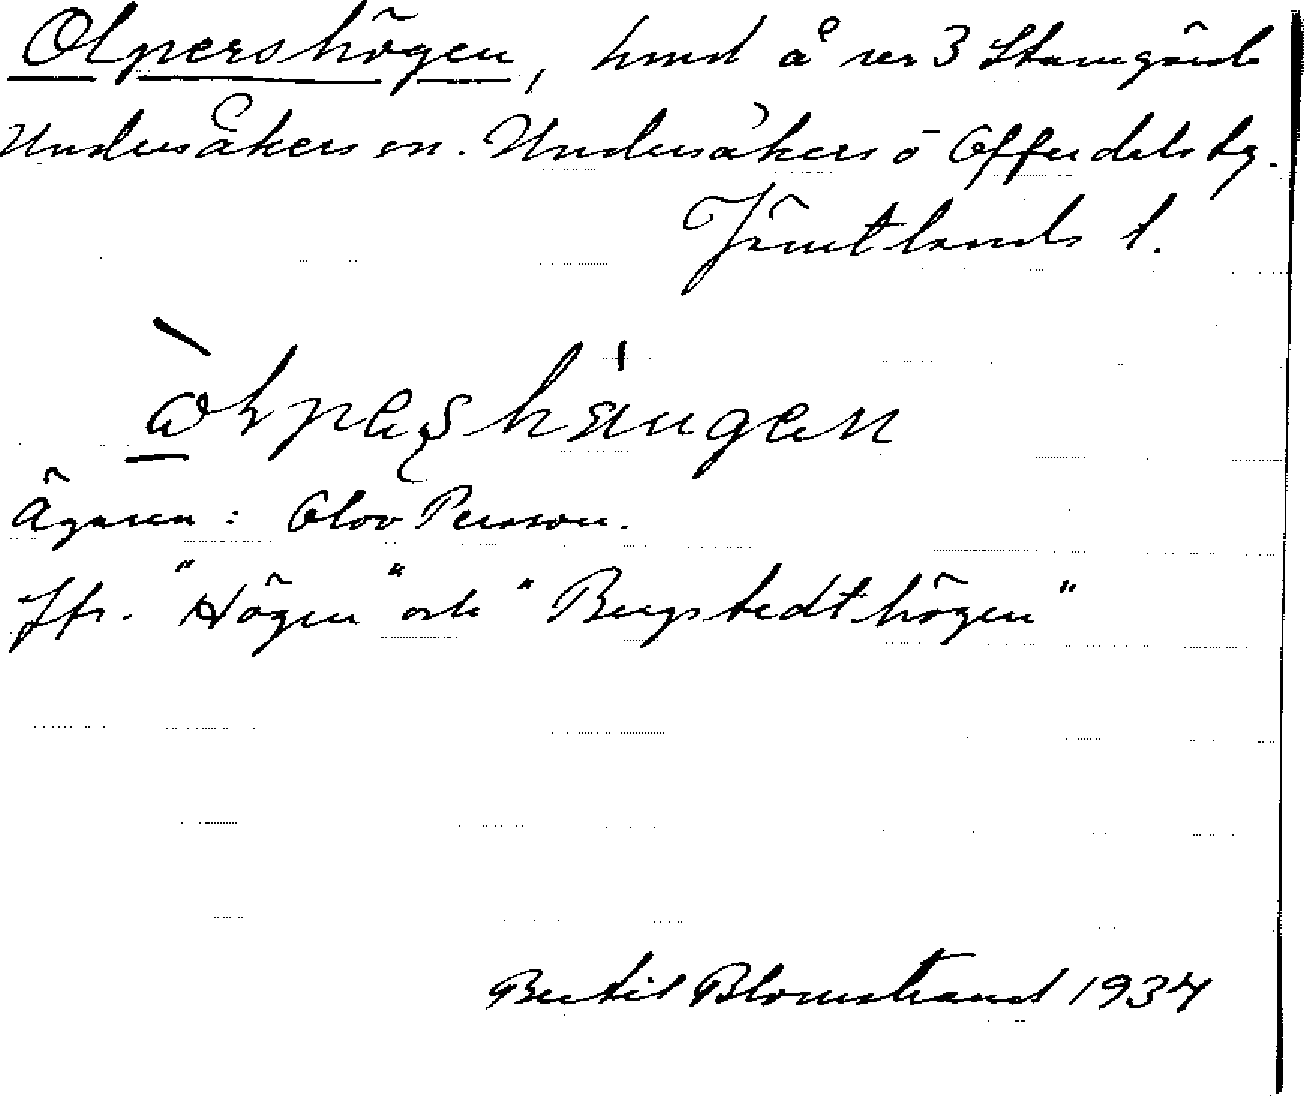 Olpershögen, hmd å nr 3 Stamgärde
Undersåkers sn. Undersåkers o Offerdals tg.
Jämtlands l.
Ägaren: Olov Persson.
Jfr. "Högen" och "Bergstedthögen"
Bertil Blomstrand 1934